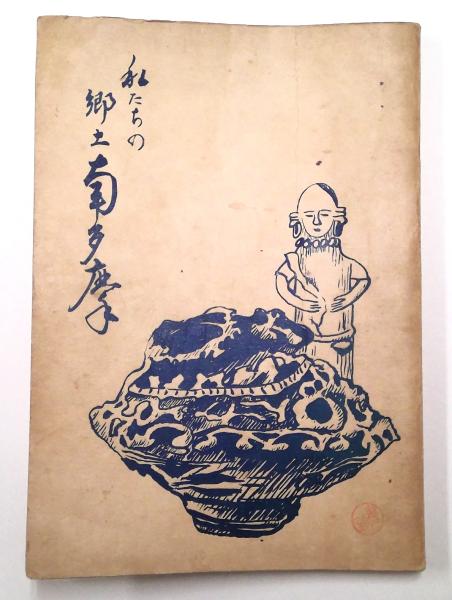 私たちの
郷土南多摩